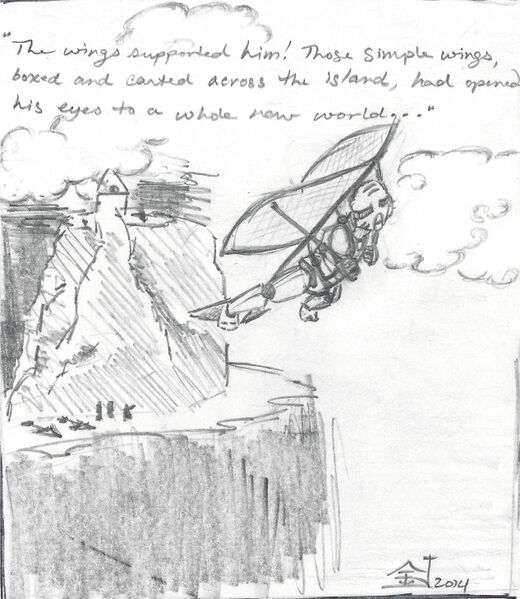 "The wings supported him! Those simple wings,
boxed and carted across the island, had opened
his eyes to a whole new world..."
2014